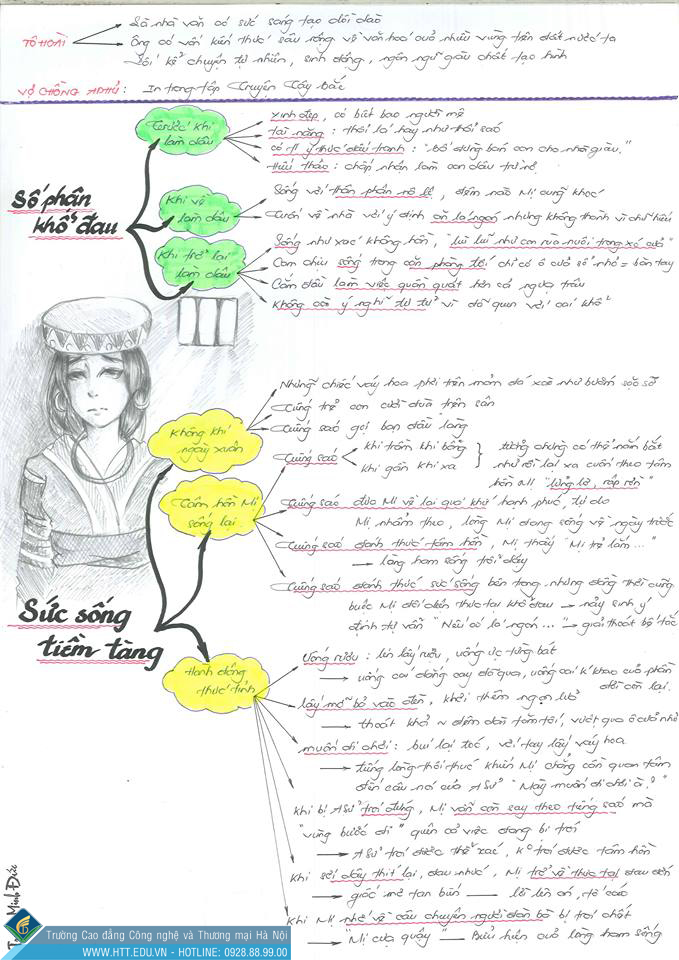 TÔ HOÀI
Là nhà văn có sức sáng tạo dồi dào
Ông có vốn kiến thức sâu rộng về văn hoá của nhiều vùng trên đất nước ta
Lối kể chuyện tự nhiên, sinh động, ngôn ngữ giàu chất tạo hình
VỢ CHỒNG APHỦ: In trong tập Truyện Tây Bắc
Số phận
khổ đau
Trước khi
làm dâu
Xinh đẹp, có biết bao người mê
tài năng: thổi lá hay như thổi sáo
có ý thức đấu tranh: "bố đừng bán con cho nhà giàu."
Hiếu thảo: chấp nhận làm con dâu trừ nợ
Khi về
làm dâu
Sống với thân phận nô lệ, đêm nào Mị cũng khóc
Trốn về nhà với ý định ăn lá ngón nhưng không thành vì chữ hiếu
Khi trở lại
làm dâu
Sống như xác không hồn, "lùi lũi như con rùa nuôi trong xó cửa"
Cam chịu sống trong căn phòng tối chỉ có ô cửa sổ nhỏ = bàn tay
Cắm đầu làm việc quần quật hơn cả ngựa trâu
Không còn ý nghĩ tự tử vì đã quen với cái khổ
Sức sống
tiềm tàng
Không khí
ngày xuân
Những chiếc váy hoa phơi trên mỏm đá xoè như bướm sặc sỡ
Tiếng trẻ con cười đùa trên sân
Tiếng sáo gọi bạn đầu làng
Tâm hồn Mị
sống lại
Tiếng sáo
khi trầm khi bổng
khi gần khi xa
tưởng chừng có thể nắm bắt
như rồi lại xa cuốn theo tâm
hồn Mị "lửng lơ, rập rờn"
Tiếng sáo đưa Mị về lại quá khứ hạnh phúc, tự do
Mị nhẩm theo, lòng Mị đang sống về ngày trước
Tiếng sáo đánh thức tâm hồn, Mị thấy "Mị trẻ lắm..."
→ lòng ham sống trỗi dậy
Tiếng sáo đánh thức sức sống bên trong nhưng đồng thời cũng
buộc Mị đối diện thực tại khổ đau → nảy sinh ý
định tự vẫn "Nếu có lá ngón..." → giải thoát bế tắc
Hành động
thức tỉnh
Uống rượu: lén lấy rượu, uống ực từng bát
→ uống cái đắng cay đã qua, uống cái khát khao của phần
đời còn lại.
lấy mỡ bỏ vào đèn, khơi thêm ngọn lửa
→ thoát khỏi đêm dài tăm tối, vượt qua ô cửa nhỏ
muốn đi chơi: búi lại tóc, với tay lấy váy hoa
→ tiếng lòng thôi thúc khiến Mị chẳng còn quan tâm
đến câu nói của A Sử "Mày muốn đi chơi à?"
khi bị A Sử trói đứng, Mị vẫn còn say theo tiếng sáo mà
"vùng bước đi" quên cả việc đang bị trói
→ A Sử trói được thể xác, ko trói được tâm hồn
khi sợi dây thít lại, đau nhức, Mị trở về thực tại đau đớn
→ giấc mơ tan biến → lời lên án, tố cáo
khi Mị nhớ về câu chuyện người đàn bà bị trói chết
→ "Mị cựa quậy" → Biểu hiện của lòng ham sống
Minh Đức
Trường Cao đẳng Công nghệ và Thương mại Hà Nội
WWW.HTT.EDU.VN - HOTLINE: 0928.88.99.00